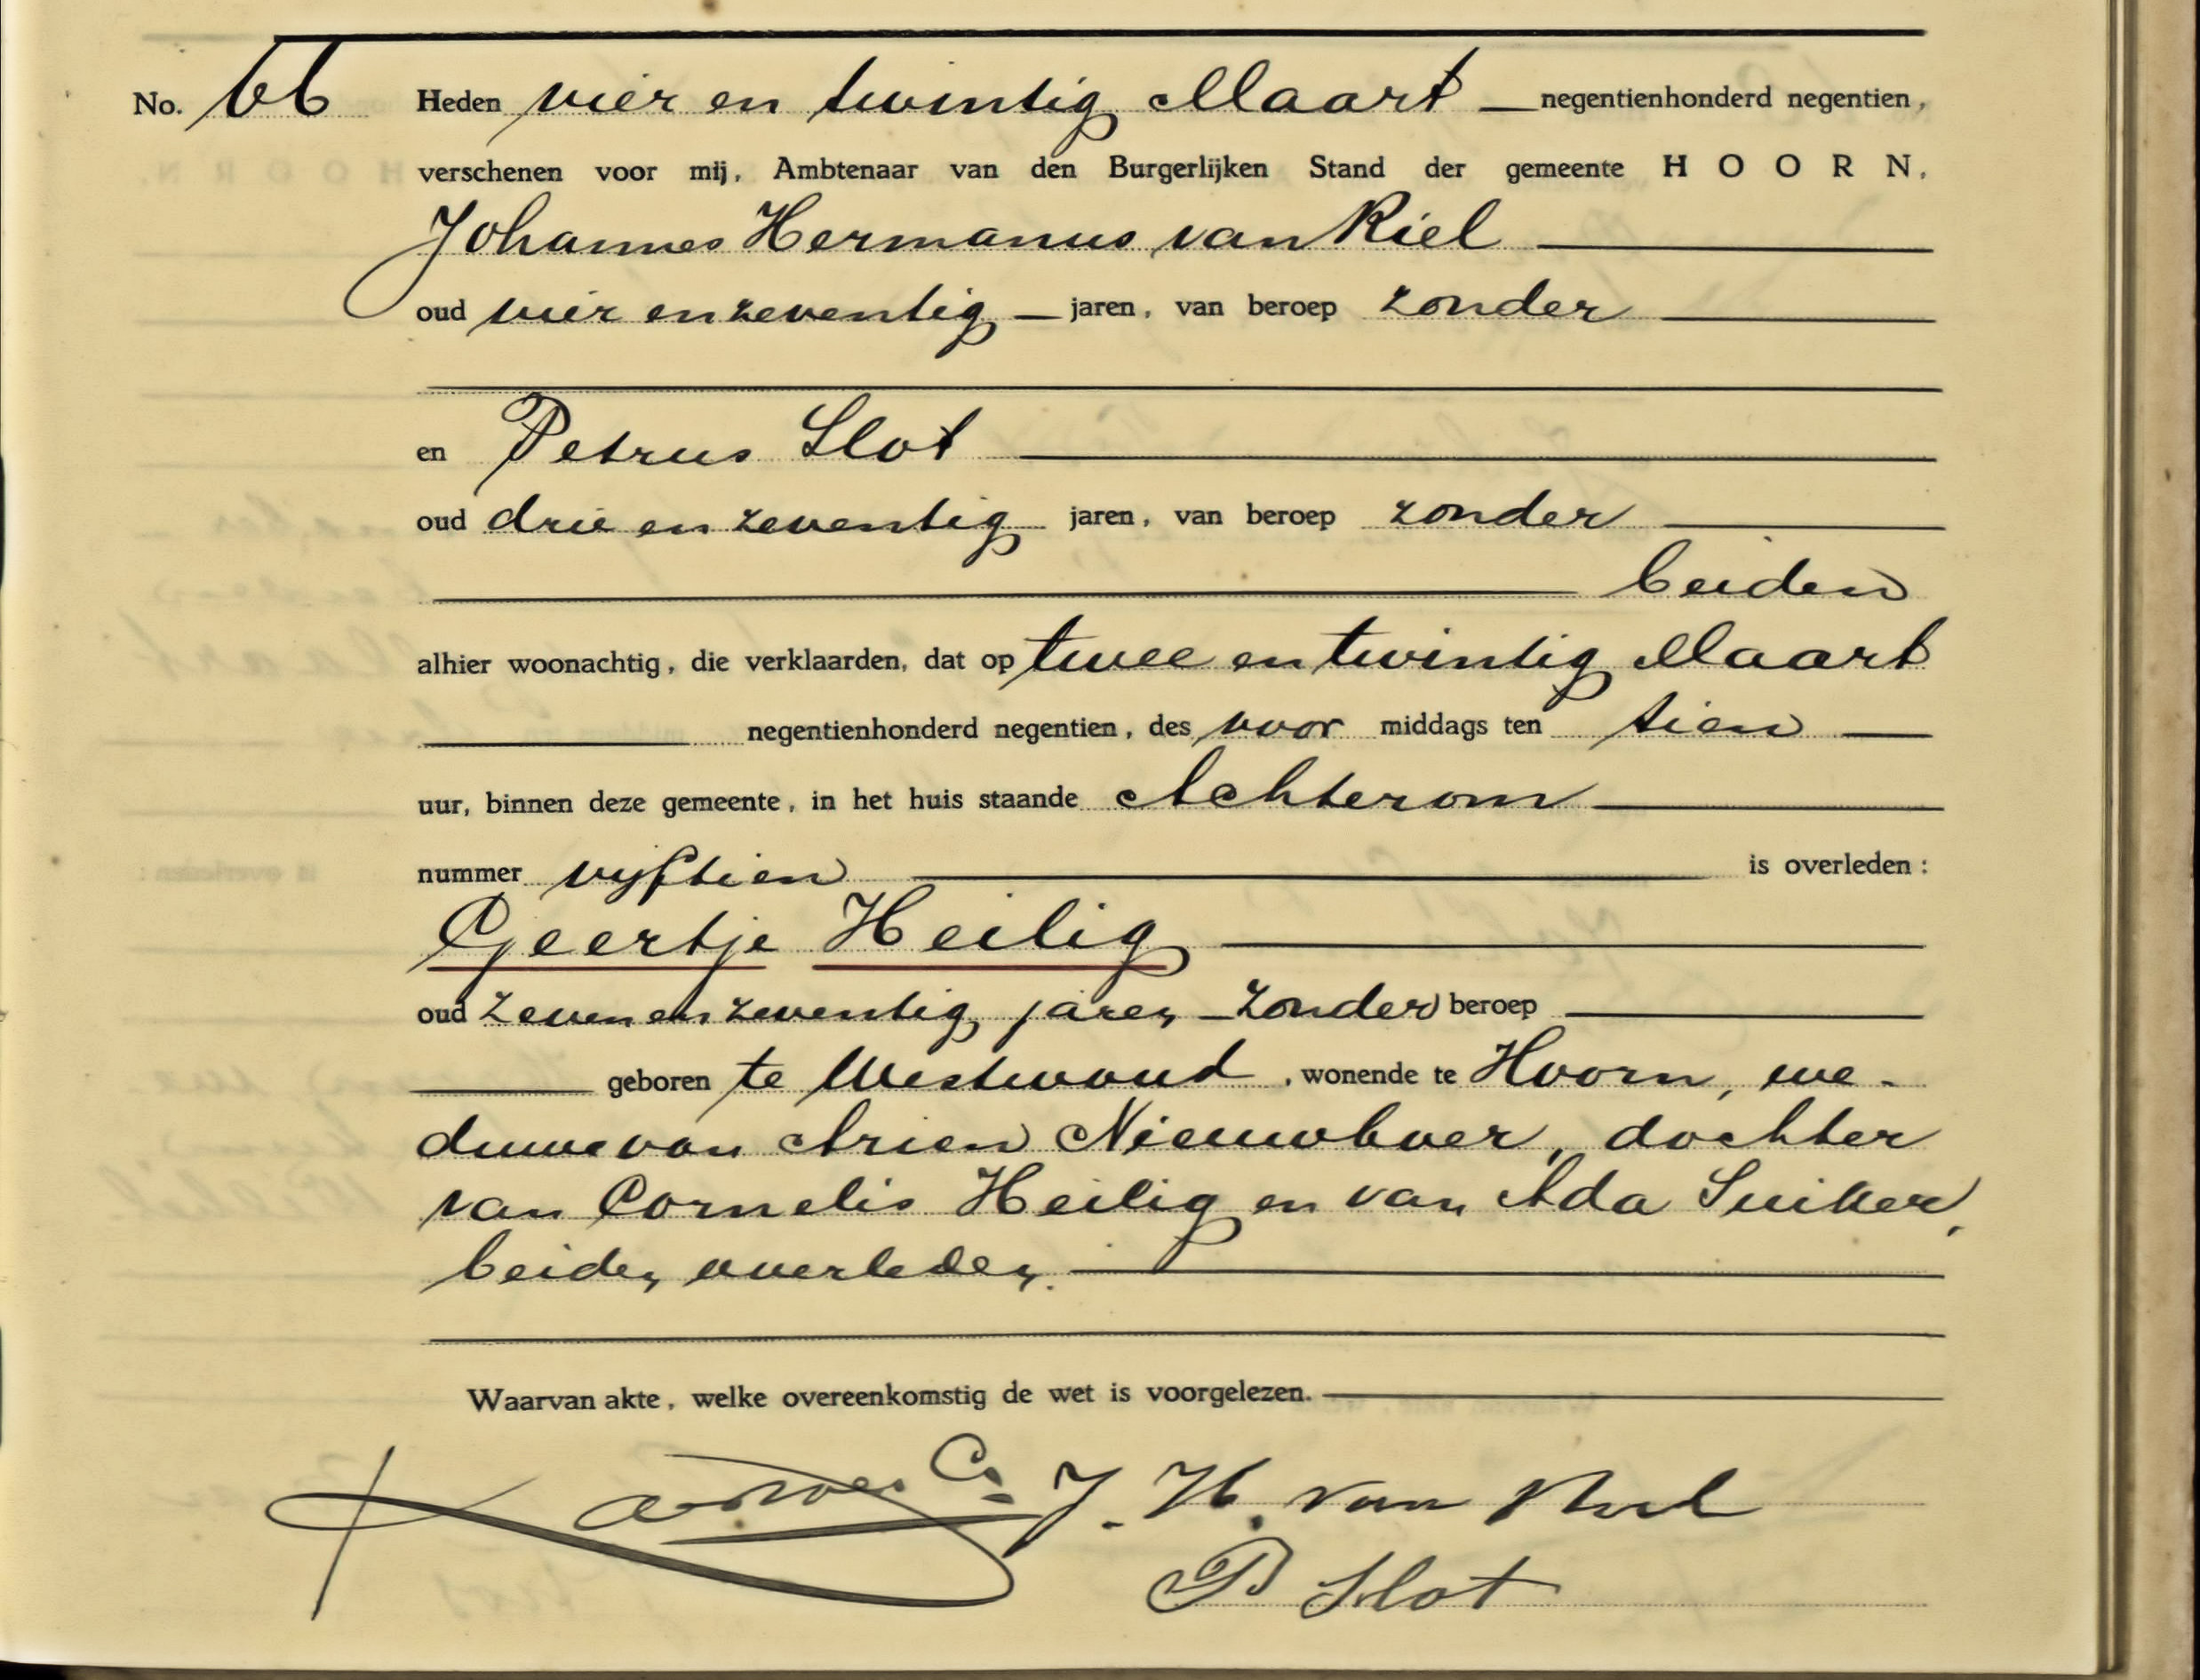 No. 66 Heden vier en twintig Maart — negentienhonderd negentien,
verschenen voor mij, Ambtenaar van den Burgerlijken Stand der gemeente HOORN,
Johannes Hermanus van Riel
oud vier en zeventig — jaren, van beroep zonder
en Petrus Slot
oud drie en zeventig jaren, van beroep zonder
beiden
alhier woonachtig, die verklaarden, dat op twee en twintig Maart
negentienhonderd negentien, des voor middags ten tien
uur, binnen deze gemeente, in het huis staande Achterom
nummer vyftien is overleden:
Geertje Heilig
oud zeven en zeventig jaren, zonder beroep
geboren te Westwoud, wonende te Hoorn, we-
duwe van Arien Nieuwboer, dochter
van Cornelis Heilig en van Ada Suiker,
beiden overleden.
Waarvan akte, welke overeenkomstig de wet is voorgelezen.
J. H. van Riel
P Slot